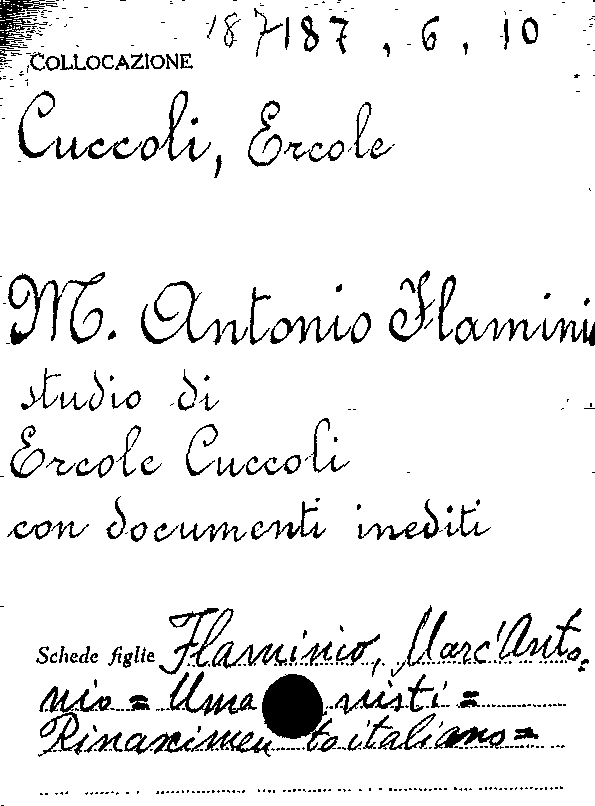 187 187, 6, 10
COLLOCAZIONE
Cuccoli, Ercole
M. Antonio Flamini
studio di
Ercole Cuccoli
con documenti inediti
Schede figlie Flaminio, Marc'Anto=
nio = Umanisti =
Rinascimento italiano =